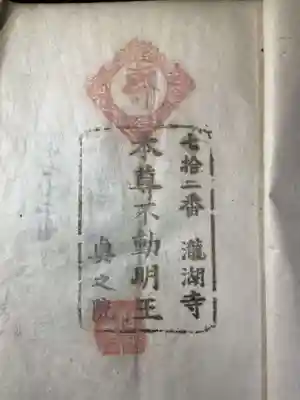 七拾二番 瀧湖寺
本尊不動明王
真之院